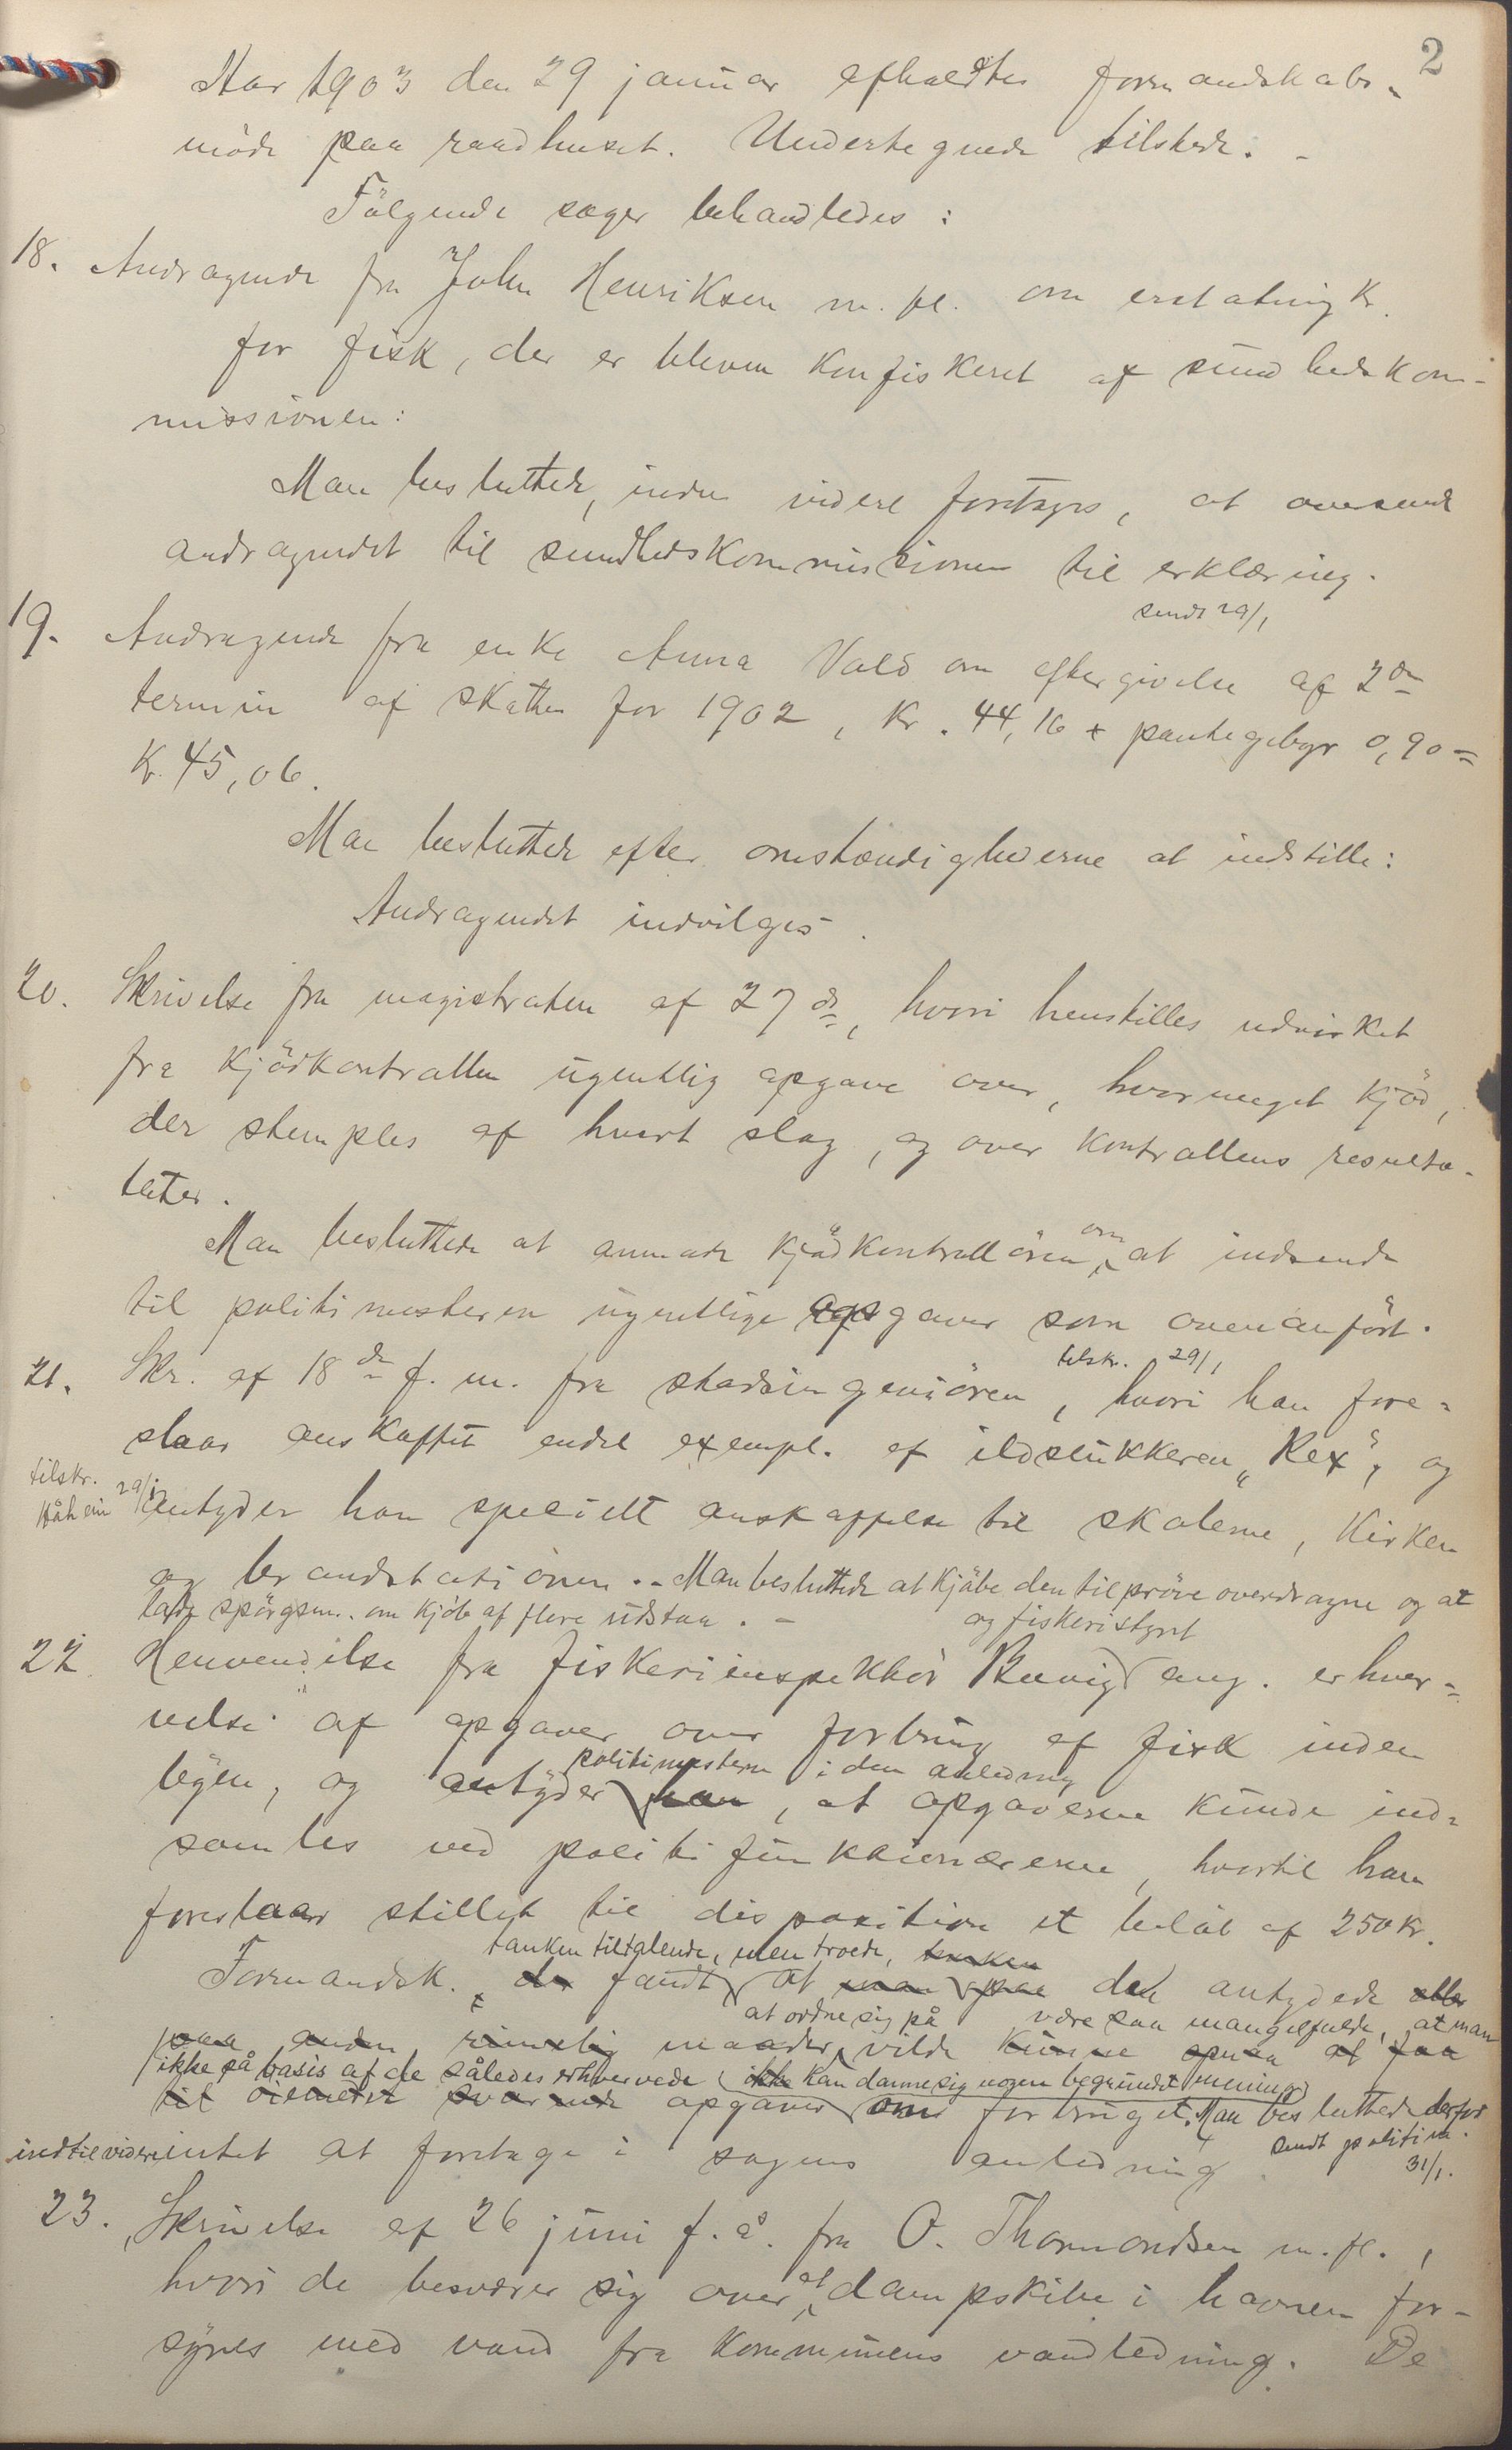 2
Aar 1903 den 29 januar afholdtes formandskabs-
möde paa raadhuset. Undertegnede tilstede. -
Fölgende sager behandledes:
18. Andragende fra John Henriksen m. fl. om erstatning
for fisk, der er bleven konfiskeret af sundhedskom-
missionen:
Man besluttede, inden videre foretages, at oversende
andragendet til sundhedskommissionen til erklæring.
sendt 29/1
19. Andragende fra enke Anna Vold om eftergivelse af 2den
termin af skatten for 1902, kr. 44,16 + pantegebyr 0,90 =
kr. 45,06.
Man besluttede efter omstændighederne at indstille:
Andragendet indvilges.
20. Skrivelse fra magistraten af 27 ds, hvori henstilles udvirket
fra kjödkontrollen ugentlig opgave over, hvormeget kjöd,
der stemples af hvert slag, og over kontrollens resulta-
tater.
Man besluttede at anmode kjödkontrollören om at indsende
til politimesteren ugentlige opgaver som ovenanfört.
tilskr. 29/1
21. Skr. af 18de f. m. fra stadsingeniören, hvori han fore-
slaar anskaffet endel exempl. af ildslukkeren "Rex", og
tilskr. 29/1
antyder han specielt anskaffelse til skolerne, kirken
og brandstationen. - Man besluttede at kjöbe den til pröve overdragne og at
lade spörgsm. om kjöb af flere udstaa. -
og fiskeristyret
22. Henvendelse fra fiskeriinspektör Buvig ang. erhver-
velse af opgaver over forbrug af fisk inden
politimesteren i den anledning
byen, og antyder han, at opgaverne kunde ind-
samles ved politifunktionærerne, hvortil han
foreslaar stillet til disposition et belöb af 250 kr.
tanken tiltalende, men troede, tanken
Formandsk. fandt at man paa den antydede eller
at ordne sig på være saa mangelfulde, at man
paa anden rimelig maader vilde kunne opnaa at faa
ikke på basis af de således erhvervede ikke kan danne sig nogen begrundet mening
til öiemedet svarende opgaver om forbruget. Man besluttede derfor
indtil videre intet at foretage i sagens anledning.
sendt politim.
31/1.
23. Skrivelse af 26 juni f. å. fra O. Thormondsen m. fl.,
hvori de besværer sig over, at dampskibe i havnen for-
synes med vand fra kommunens vandledning. De